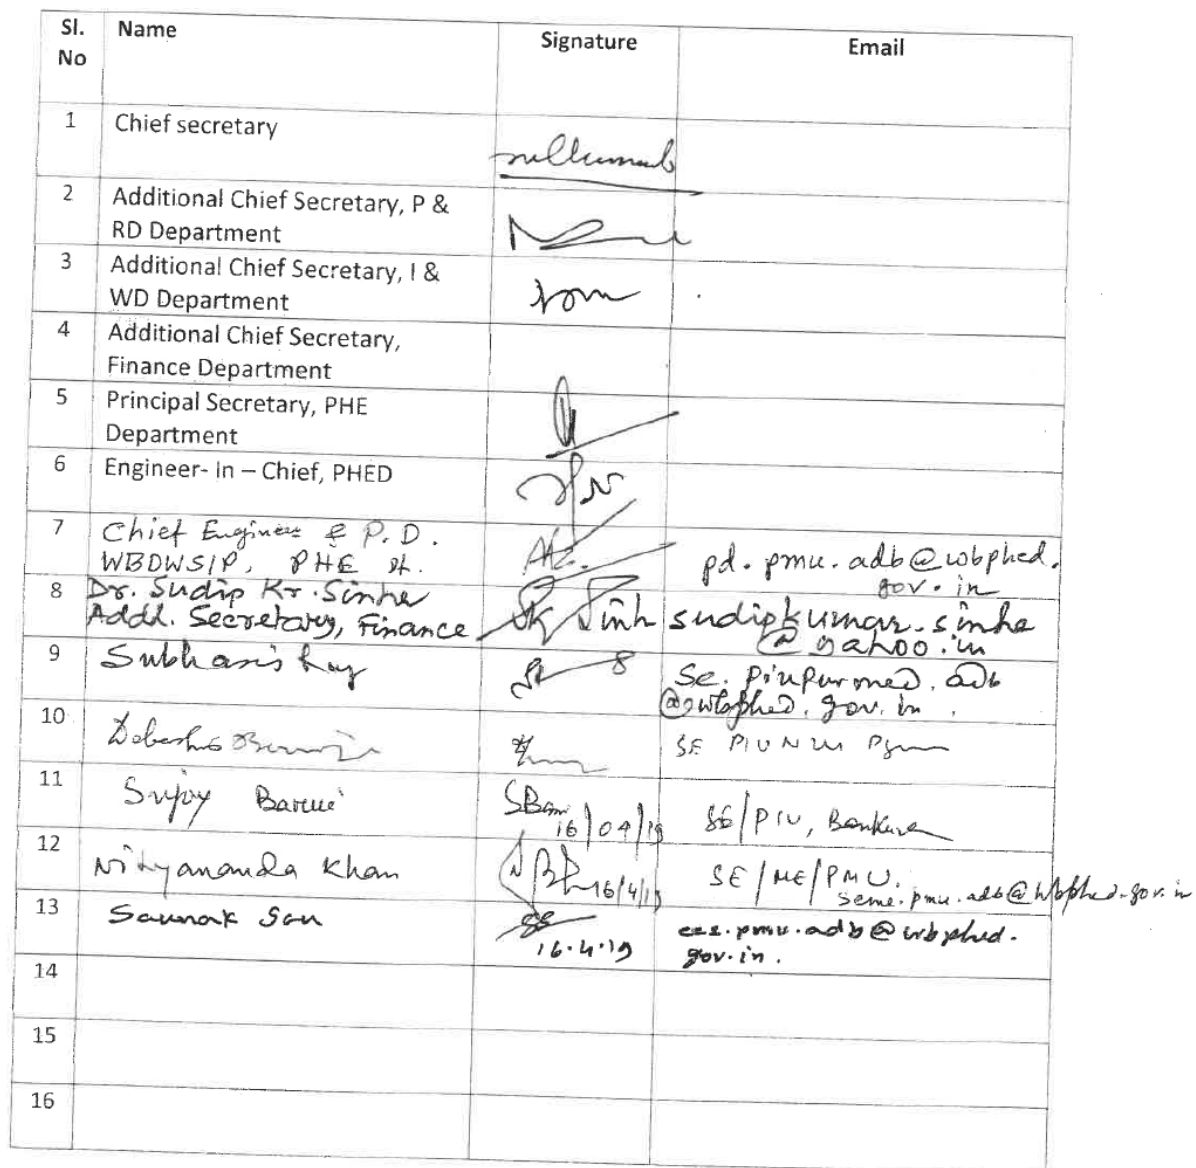 Sl. No Name Signature Email
1 Chief secretary
2 Additional Chief Secretary, P &
RD Department
3 Additional Chief Secretary, I &
WD Department
4 Additional Chief Secretary,
Finance Department
5 Principal Secretary, PHE
Department
6 Engineer- in – Chief, PHED
7 Chief Engineer & P.D.
WBDWSIP, PHE pd.pmu.adb@wbphed.
gov.in
8 Dr. Sudip Kr. Sinha
Addl. Secretary, Finance sudipkumar.sinha
@yahoo.in
9 Subhasis
@wbphed.gov.in
10 SE PIU
11 Sujoy Barui 16/04/19 SE/PIU, Bankura
12 Nityananda Khan 16/4/19 SE/ME/PMU.
seme.pmu.adb@wbphed.gov.in
13 Saunak Sau 16.4.19 .pmu.adb@wbphed.
gov.in.
14
15
16